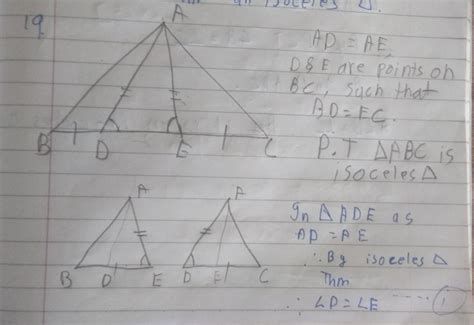 an isoceles Δ.
19
A
AD = AE,
D & E are points on
BC, such that
BD = EC.
P.T ΔABC is
isoceles Δ
B D E C
A A
B D E D E C
In ΔADE as
AD = AE
∴ By isoceles Δ
Thm
∴ ∠D = ∠E ---- 1